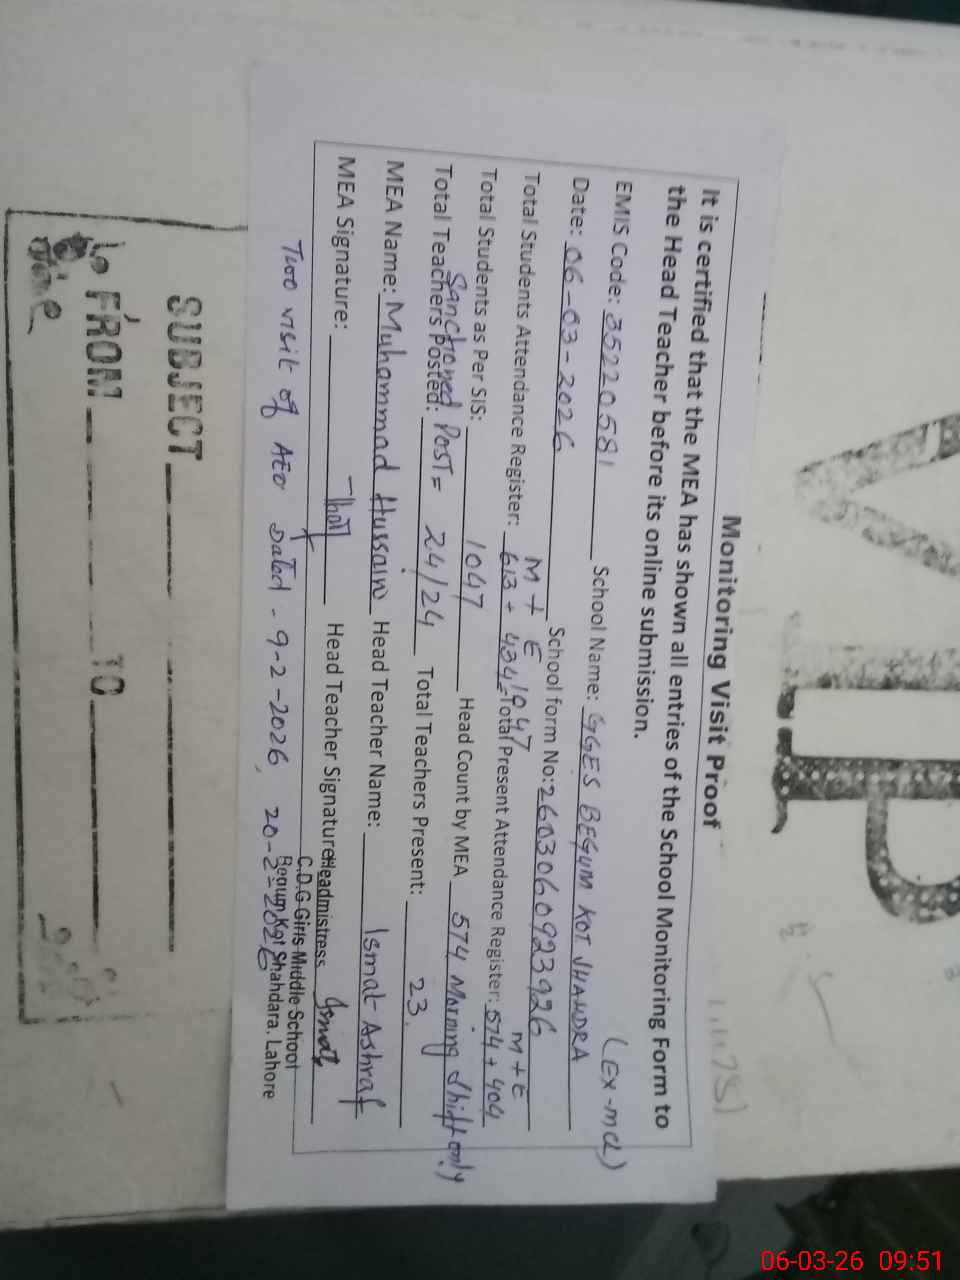 Monitoring Visit Proof
It is certified that the MEA has shown all entries of the School Monitoring Form to
the Head Teacher before its online submission.
(EX-MCL)
EMIS Code: 35220581 School Name: GGES BEGUM KOT SHAHDRA
Date: 06-03-2026 School form No: 2603060923926
M + E M + E
Total Students Attendance Register: 613 + 434 = 1047 Total Present Attendance Register: 574 + 404
Total Students as Per SIS: 1047 Head Count by MEA 574 Morning Shift only
Sanctioned Post =
Total Teachers Posted: 24/24 Total Teachers Present: 23.
MEA Name: Muhammad Hussain Head Teacher Name: Ismat Ashraf
MEA Signature: Head Teacher Signature: Ismat
Headmistress
C.D.G Girls Middle School
Begum Kot Shahdara, Lahore
Two visit of AEO Dated - 9-2-2026, 20-2-2026
SUBJECT
FROM TO
VIP
06-03-26 09:51